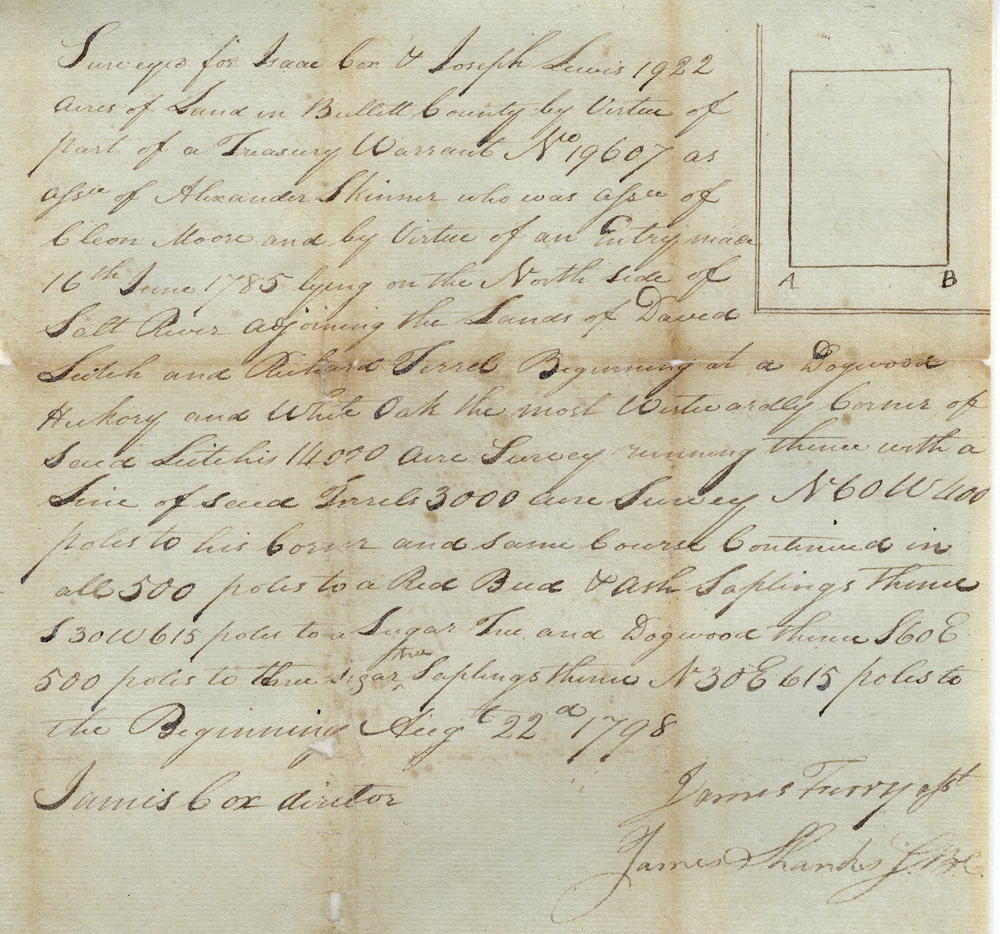 Surveyed for Isaac Cox & Joseph Lewis 1922
Acres of Land in Bullett County by Virtue of
part of a Treasury Warrant No 19607 as
assee of Alexander Skinner who was assee of
Cleon Moore and by Virtue of an Entry made
16th June 1785 lying on the North side of
Salt River adjoining the Lands of David
Leitch and Richard Terrel Beginning at a Dogwood
Hickory and White Oak the most Westwardly Corner of
said Leitchis 14000 acre Survey running thence with a
Line of said Terrels 3000 acre Survey N60W 400
poles to his Corner and same Course Continued in
all 500 poles to a Red Bud & Ash Saplings thence
S30W 615 poles to a Sugar Tree and Dogwood thence S60E
500 poles to three sugar tree Saplings thence N30E 615 poles to
the Beginning Augt 22d 1798
James Cox director
James Furry asst
James Shanks
A
B